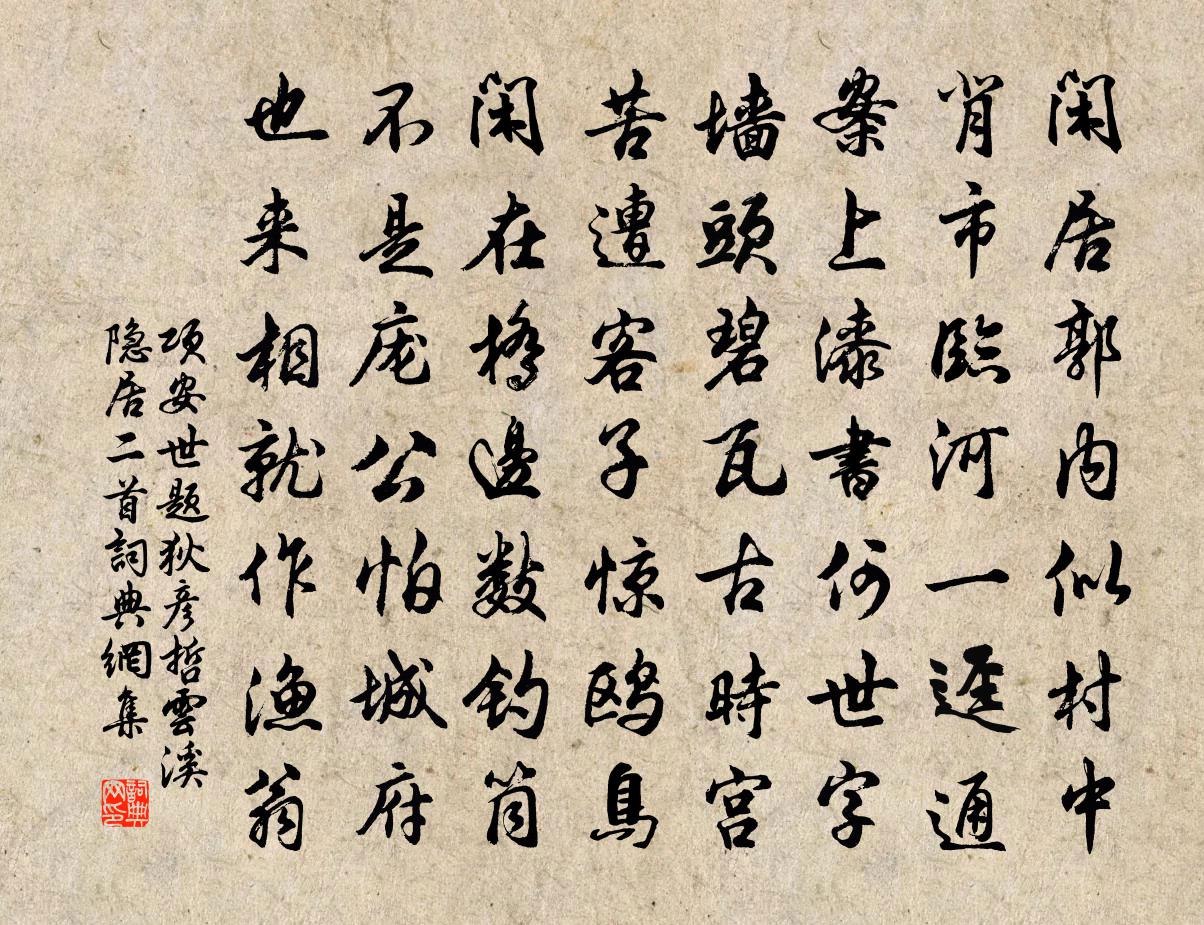 闲居郭内似村中
背市临河一迳通
案上漆书何世字
墙頭碧瓦古時宫
苦遭客子惊鸥鳥
闲在橋邊数钓筒
不是庞公怕城府
也来相就作渔翁
项安世题狄彦哲雲溪
隐居二首詞典網集
詞典网印